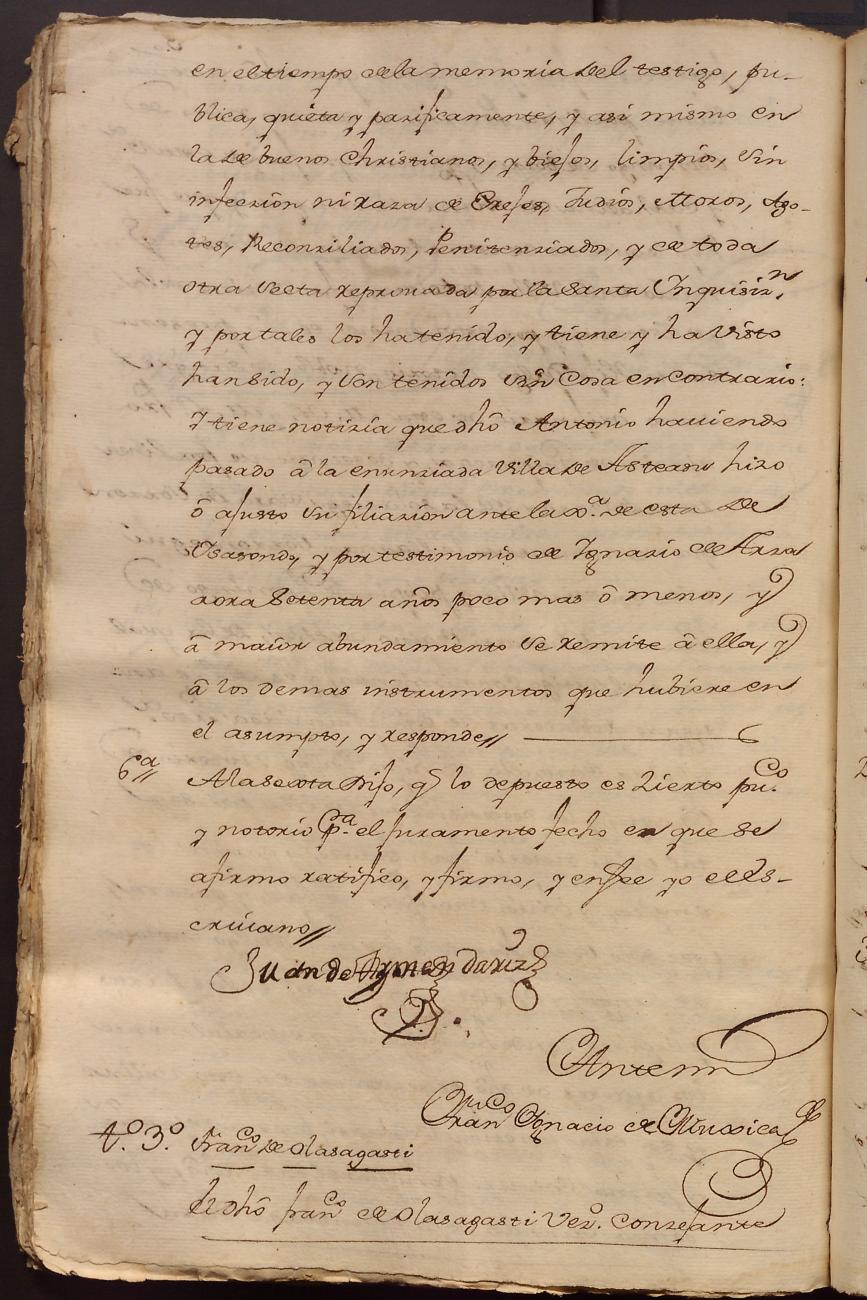 en el tiempo de la memoria del testigo, pu-
blica, quieta y pazificamente, y asi mismo en
la de buenos Christianos, y biejos, limpios, sin
infeczion ni raza de Erejes, Judios, Moros, Ago-
tes, Reconziliados, Penitenziados, y de toda
otra Secta reprouada por la Santa Inquisizn.
y por tales los ha tenido, y tiene y ha visto
han sido, y son tenidos sin Cosa en contrario:
Y tiene notizia que dho Antonio hauiendo
pasado â la enunziada Villa de Asteasu hizo
ô ajusto su filiazion ante la Xa. de esta de
Ysasondo, y por testimonio de Ignazio de Arza
aora Setenta años poco mas ô menos, y
â maior abundamiento se remite â ella, y
â los demas instrumentos que hubiere en
el asumpto, y responde//
6a// A la sexta Dijo, q lo depuesto es Zierto puco.
y notorio pa. el juramento fecho en que se
afirmo ratifico, y firmo, y en fee yo el Es-
criuano//
Juan de Aymendariz
Antemi
Franco Ignacio de Muxica
to. 3o. Franco de Olasagasti
El dho franco de Olasagasti Vezo. Conzejante